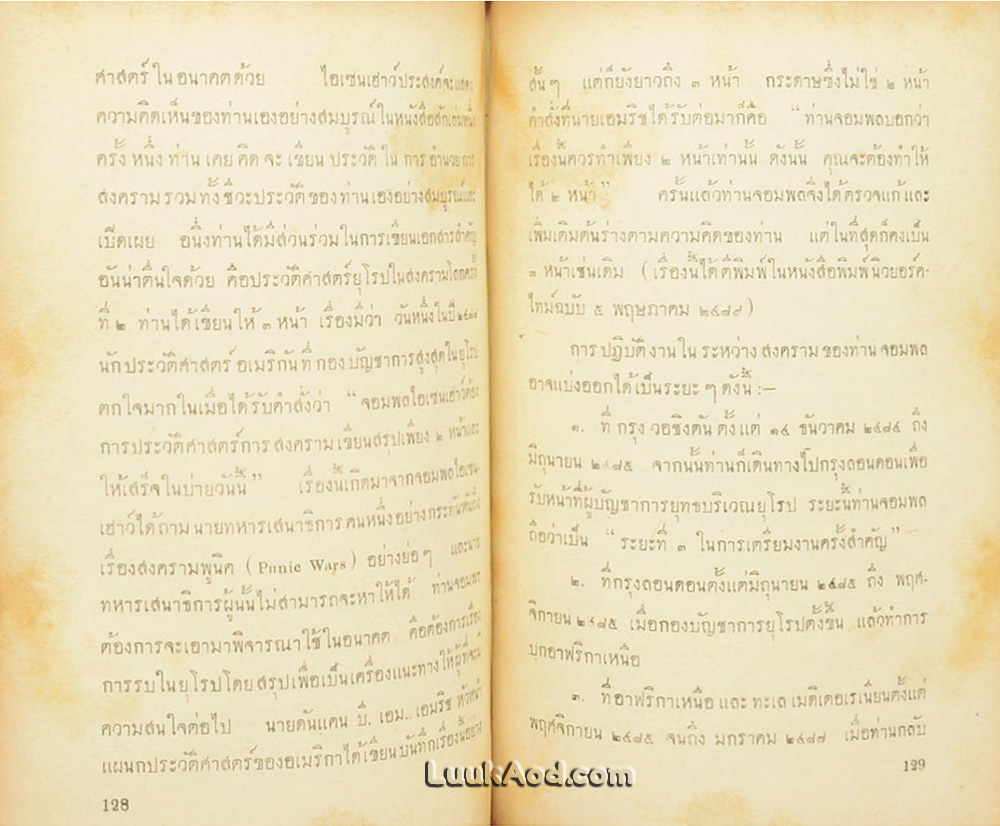 ศาสตร์ในอนาคตด้วย ไอเซนเฮาว์ประสงค์จะแสดง
ความคิดเห็นของท่านเองอย่างสมบูรณ์ในหนังสือสักเล่มหนึ่ง
ครั้งหนึ่งท่านเคยคิดจะเขียนประวัติในการอำนวยการ
สงครามรวมทั้งชีวะประวัติของท่านเองอย่างสมบูรณ์และ
เปิดเผย อนึ่งท่านได้มีส่วนร่วมในการเขียนเอกสารสำคัญ
อันน่าตื่นใจด้วย คือประวัติศาสตร์ยุโรปในสงครามโลกครั้ง
ที่ ๒ ท่านได้เขียนให้ ๓ หน้า เรื่องมีว่า วันหนึ่งในปี ๒๔๘๘
นักประวัติศาสตร์อเมริกันที่กองบัญชาการสูงสุดในยุโรป
ตกใจมากในเมื่อได้รับคำสั่งว่า “ จอมพลไอเซนเฮาว์ต้อง
การประวัติศาสตร์การสงครามเขียนสรุปเพียง ๒ หน้าและ
ให้เสร็จในบ่ายวันนี้ ” เรื่องนี้เกิดมาจากจอมพลไอเซน-
เฮาว์ได้ถามนายทหารเสนาธิการคนหนึ่งอย่างกระทันหันถึง
เรื่องสงครามพูนิค ( Punic Wars ) อย่างย่อๆ และนาย
ทหารเสนาธิการผู้นั้นไม่สามารถจะหาให้ได้ ท่านจอมพล
ต้องการจะเอามาพิจารณาใช้ในอนาคต คือต้องการเรื่อง
การรบในยุโรปโดยสรุปเพื่อเป็นเครื่องแนะทางให้ผู้ที่จะมี
ความสนใจต่อไป นายดันแคน บี. เอม.. เอมริช หัวหน้า
แผนกประวัติศาสตร์ของอเมริกาได้เขียนบันทึกเรื่องนี้อย่าง
128
สั้นๆ แต่ก็ยังยาวถึง ๓ หน้า กระดาษซึ่งไม่ใช่ ๒ หน้า
คำสั่งที่นายเอมริชได้รับต่อมาก็คือ “ ท่านจอมพลบอกว่า
เรื่องนั้นควรทำเพียง ๒ หน้าเท่านั้น ดังนั้น คุณจะต้องทำให้
ได้ ๒ หน้า ” ครั้นแล้วท่านจอมพลจึงได้ตรวจแก้และ
เพิ่มเติมต้นร่างตามความคิดของท่าน แต่ในที่สุดก็คงเป็น
๓ หน้าเช่นเดิม ( เรื่องนี้ได้ตีพิมพ์ในหนังสือพิมพ์นิวยอร์ค-
ไทม์ฉบับ ๕ พฤษภาคม ๒๔๘๙ )
การปฏิบัติงานในระหว่างสงครามของท่านจอมพล
อาจแบ่งออกได้เป็นระยะ ๆ ดังนี้ :—
๑. ที่กรุงวอชิงตันตั้งแต่ ๑๔ ธันวาคม ๒๔๘๔ ถึง
มิถุนายน ๒๔๘๕ จากนั้นท่านก็เดินทางไปกรุงลอนดอนเพื่อ
รับหน้าที่ผู้บัญชาการยุทธบริเวณยุโรป ระยะนี้ท่านจอมพล
ถือว่าเป็น “ ระยะที่ ๑ ในการเตรียมงานครั้งสำคัญ ”
๒. ที่กรุงลอนดอนตั้งแต่มิถุนายน ๒๔๘๕ ถึง พฤศ-
จิกายน ๒๔๘๕ เมื่อกองบัญชาการยุโรปตั้งขึ้น แล้วทำการ
บุกอาฟริกาเหนือ
๓. ที่อาฟริกาเหนือและทะเลเมดิเตอเรเนียนตั้งแต่
พฤศจิกายน ๒๔๘๕ จนถึง มกราคม ๒๔๘๗ เมื่อท่านกลับ
129
LuukAod.com